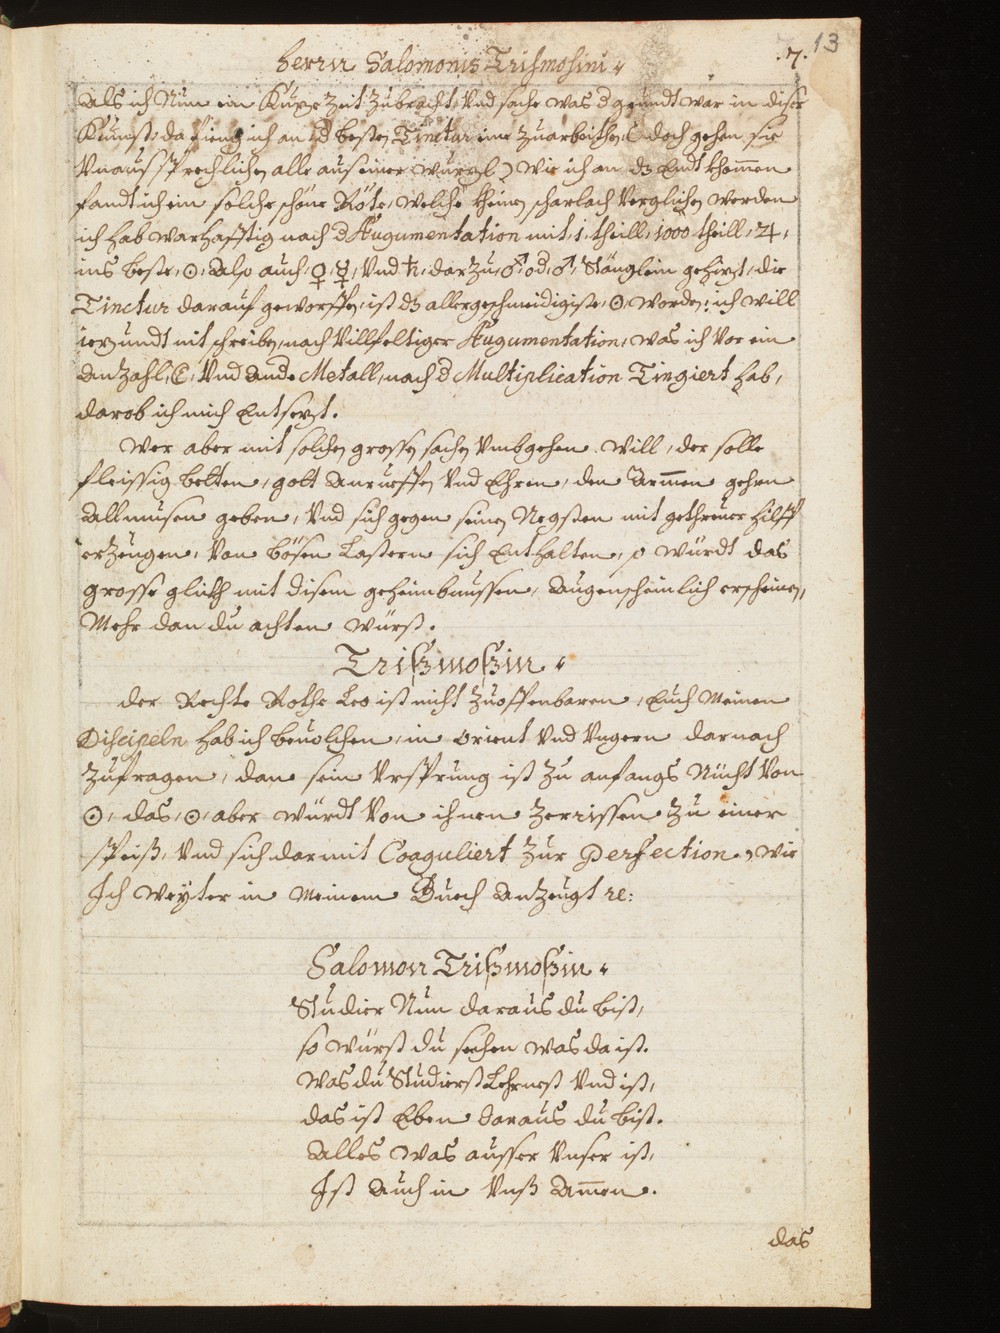 13
Herrn Salomonis Trismosini .7.
Als ich Nun ein Kurze Zeit Zubracht, Vnd sache was d grundt war in diser
Kunst, da fieng ich an d besten Tinctur eine Zuarbeithen, doch gehen sie
Vnaussprechlichen alle aus einer wurzl) wie ich an dz Endt khommen
fandt ich ein solche schöne Röte, welche kheinen scharlach Verglichen werden
ich hab warhafftig nach d Augumentation mit, 1, theill, 1000 theill, ♃,
ins beste, ☉, Also auch, ♀, ☿, Vnd ♄, darzu, ♂, od, ♂, Stänglein gehizt, die
Tinctur darauf geworffen, ist dz allergeschmeidigiste, ☉, worden: ich will
iezundt nit schreiben, nach Villfeltiger Augumentation, was ich Vor ein
Anzahl, Vnd Ande Metall, nach d Multiplication Tingiert hab,
darob ich mich Entsezt.
Wer aber mit solchen grossen sachen Vmbgehen will, der solle
fleissig betten, gott Anrueffen Vnd Ehren, den Armen gehrn
Allmusen geben, Vnd sich gegen seinen Negsten mit gethreuer Hilff
erzeugen, Von bösen Lastern sich Enthalten, so würdt das
grosse glickh mit disem geheimbnussen, Augenscheinlich erscheinen,
Mehr dan du achten würst.
Trißmoßin
der Rechte Rothe Leo ist nicht Zuoffenbaren, Euch Meinen
Discipeln hab ich beuolchen, in Orient Vnd Vngern darnach
Zufragen, dan sein Vrsprung ist Zu anfangs Nücht Von
☉, das, ☉, aber würdt Von ihnen Zerrissen Zu einer
speiß, Vnd sich darmit Coaguliert Zur Perfection, wie
Ich weyter in Meinem Buech Anzeugt re:
Salomon Trißmoßin
Studier Nun daraus du bist,
so würst du sechen was da ist.
Was du Studierst Lehrnest Vnd ist,
das ist Eben daraus du bist.
Alles was ausser Vnser ist,
Ist Auch in Vnß Amen.
das